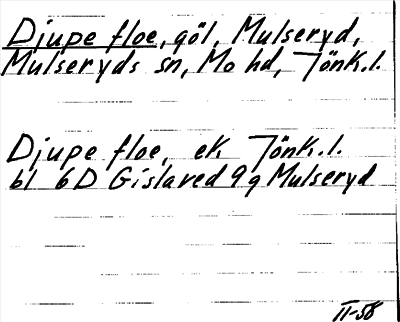 Djupe floe, göl, Mulseryd,
Mulseryds sn, Mo hd, Jönk.l.
Djupe floe, ek. Jönk.l.
bl 6D Gislaved 9g Mulseryd
II-58